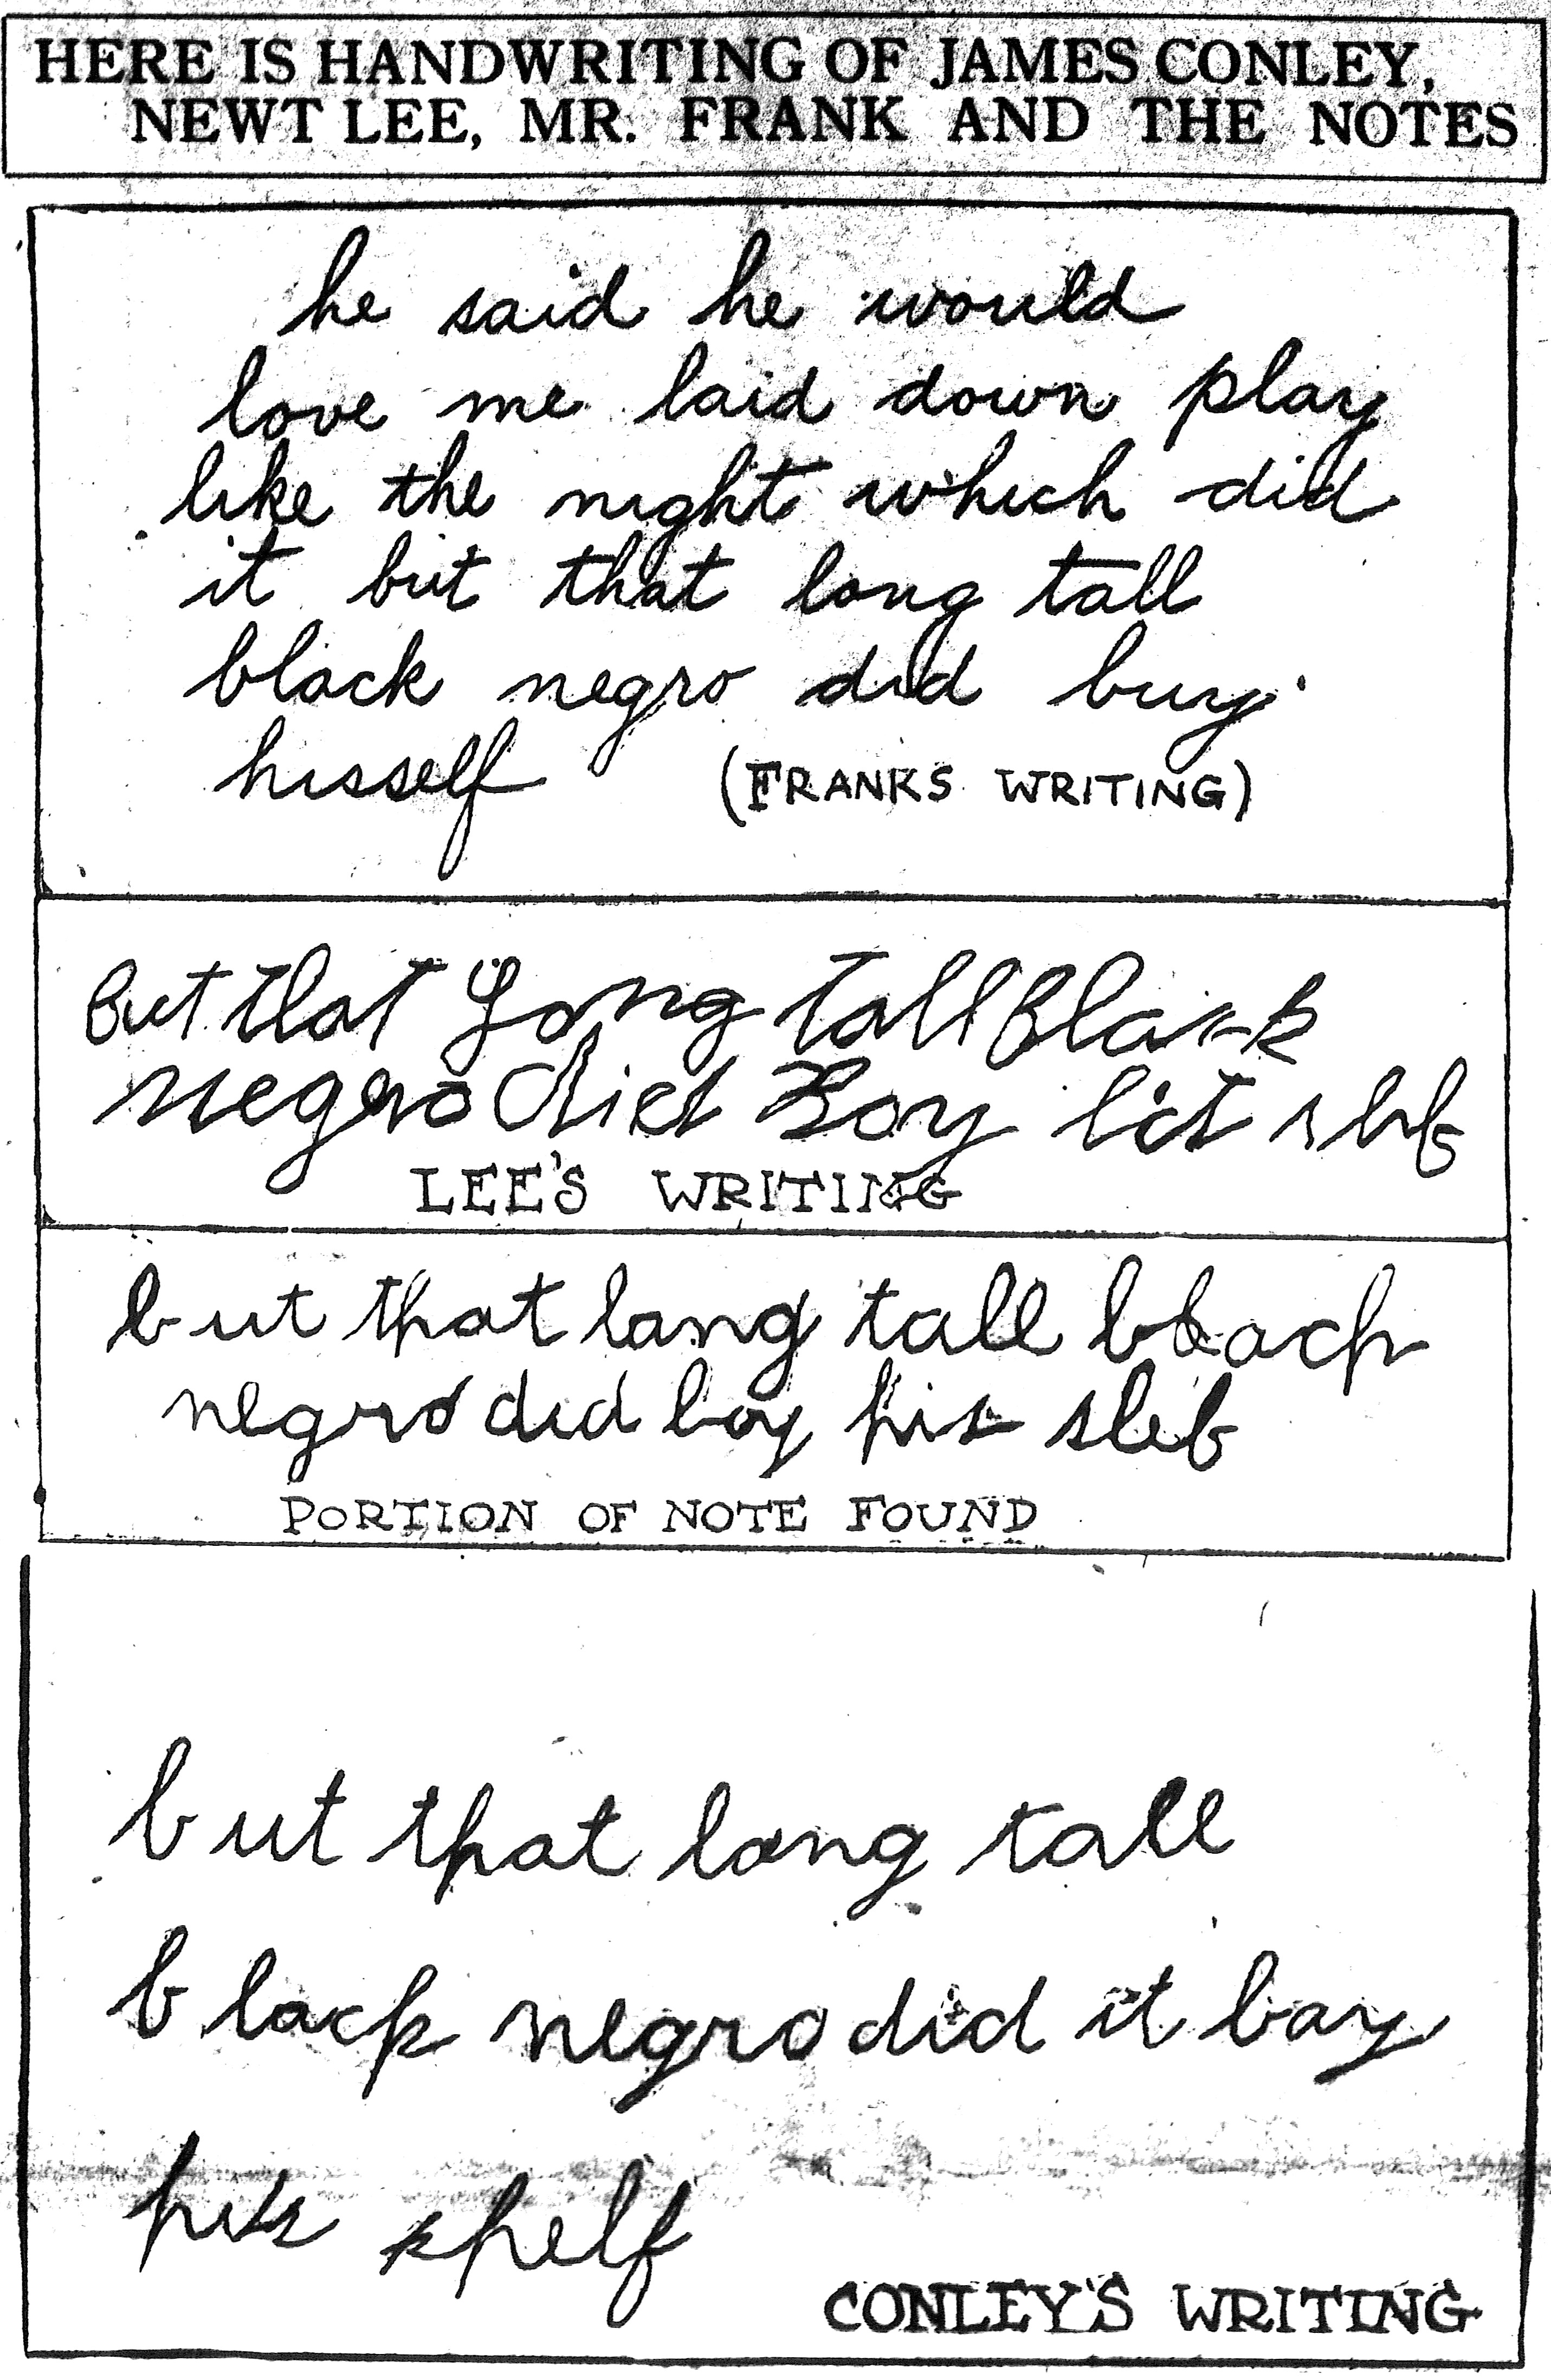 HERE IS HANDWRITING OF JAMES CONLEY,
NEWT LEE, MR. FRANK AND THE NOTES
he said he would
love me laid down play
like the night which did
it but that long tall
black negro did buy
hisself (FRANKS WRITING)
But that Long tall Black
negro did Boy lit slef
LEE'S WRITING
but that lang tall black
negro did boy his sleb
PORTION OF NOTE FOUND
but that long tall
black negro did it bay
his shelf
CONLEY'S WRITING